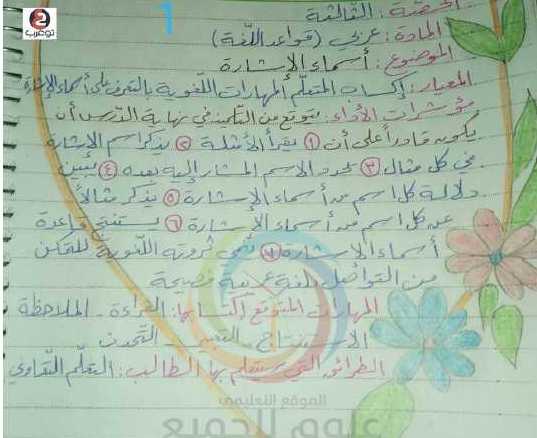 1
توعرب
الحصة: الثالثة
المادة: عربي (قواعد اللغة)
الموضوع: أسماء الإشارة
المعيار: إكساب المتعلم المهارات اللغوية بالتعرف على أسماء الإشارة
مؤشرات الأداء: يتوقع من التلميذ في نهاية الدرس أن
يكون قادراً على أن ① يقرأ الأمثلة ② يذكر اسم الإشارة
في كل مثال ③ يحدد الاسم المشار إليه بعده ④ يبين
دلالة كل اسم من أسماء الإشارة ⑤ يذكر مثالاً
عن كل اسم من أسماء الإشارة ⑥ يستنتج قاعدة
أسماء الإشارة ⑦ ينمي ثروته اللغوية للتمكن
من التواصل بلغة عربية فصيحة
المهارات المتوقع اكتسابها: القراءة - الملاحظة
الاستنتاج - التعبير - التحدث
الطرائق التي سيتعلم بها الطالب: التعلم التعاوني
الموقع التعليمي
علوم للجميع